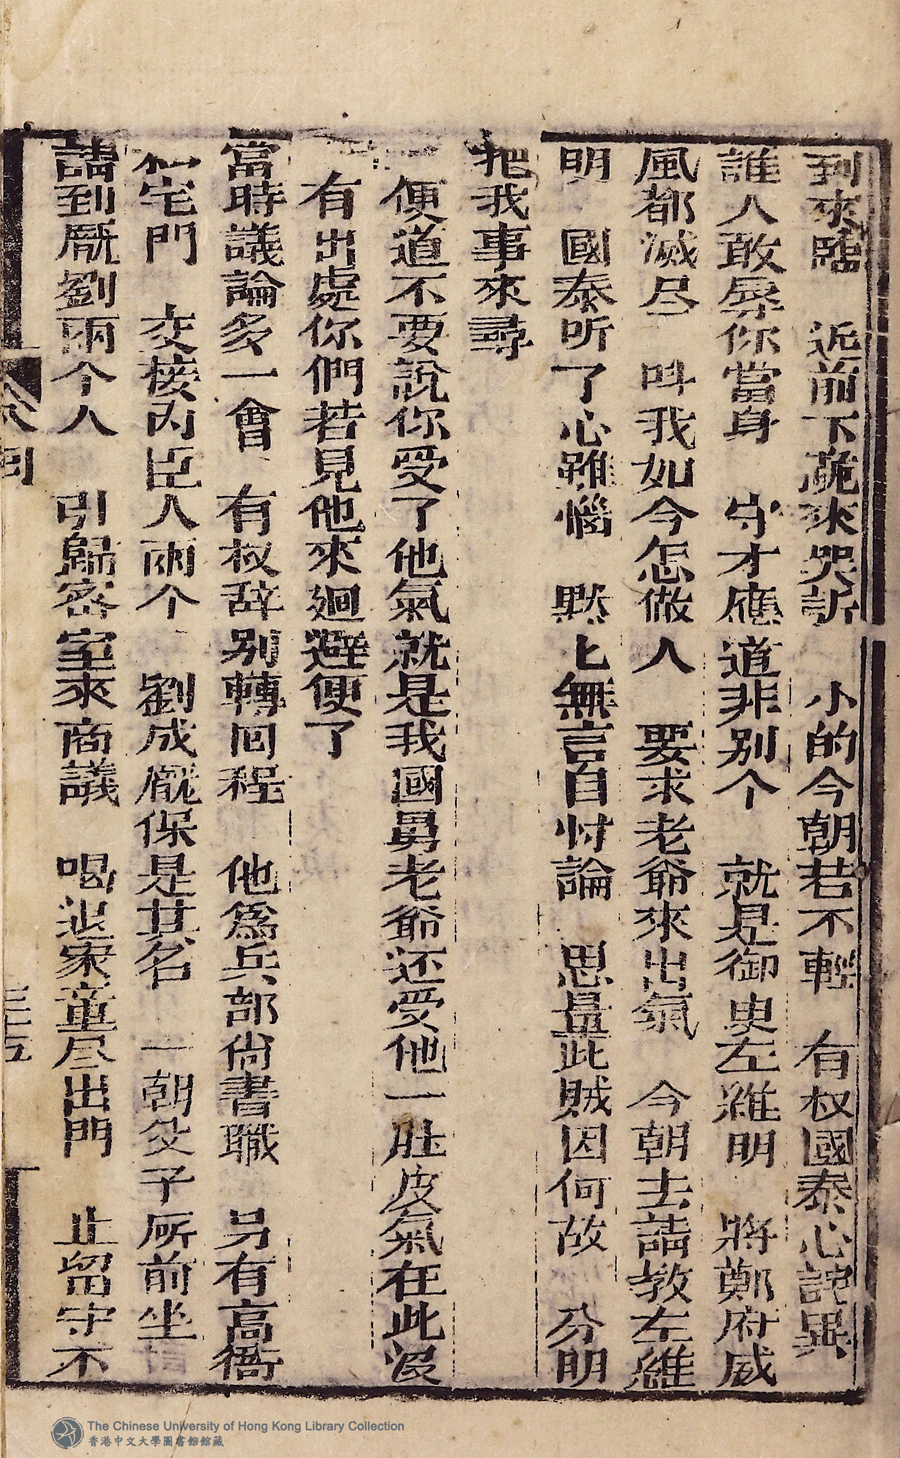 到來臨 近前下跪來哭訴 小的今朝若不輕 有权國泰心詫異
誰人敢辱你當身 守才應道非别个 就是御史左維明 將鄭府威
風都滅尽 呌我如今怎做人 要求老爺來出氣 今朝去請教左維
明 國泰听了心雖惱 黙匕無言自忖論 思量此賊因何故 分明
把我事來尋
便道不要說你受了他氣就是我國舅老爺还受他一肚皮氣在此没
有出處你們若見他來廻避便了
當時議論多一會 有权辞别轉回程 他爲兵部尙書職 另有高衙
私宅門 交接內臣人兩个 劉成厩保是其名 一朝父子㕔前坐
請到厩劉兩个人 引歸密室來商議 喝退家童尽出門 止留守不
三十五
The Chinese University of Hong Kong Library Collection
香港中文大學圖書館館藏